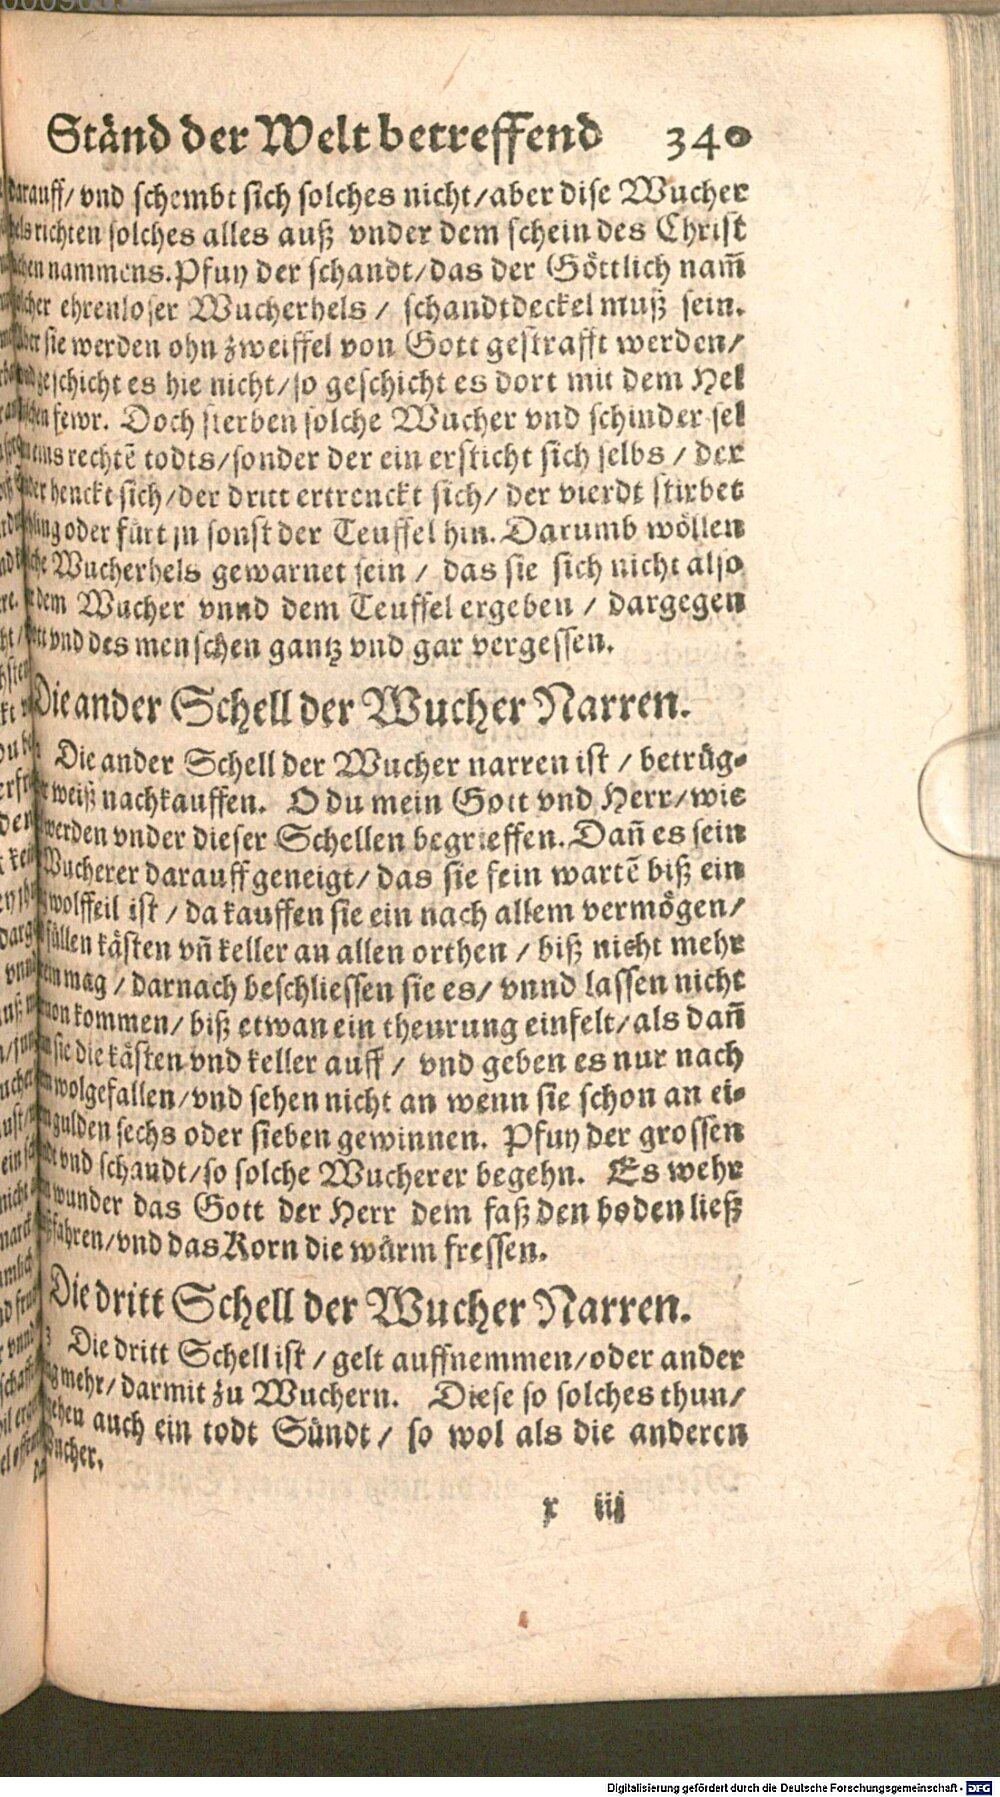 Ständ der Welt betreffend 340
darauff/ vnd schembt sich solches nicht/aber dise Wucher
richten solches alles auß vnder dem schein des Christ
nammens. Pfuy der schandt/das der Göttlich nam̃
ehrenloser Wucherhels / schandtdeckel muß sein.
sie werden ohn zweiffel von Gott gestrafft werden/
geschicht es hie nicht/so geschicht es dort mit dem Hel
fewr. Doch sterben solche Wucher vnd schinder sel
rechtẽ todts/sonder der ein ersticht sich selbs / der
henckt sich/der dritt ertrenckt sich/ der vierdt stirbet
oder fürt jn sonst der Teuffel hin. Darumb wöllen
Wucherhels gewarnet sein / das sie sich nicht also
dem Wucher vnnd dem Teuffel ergeben / dargegen
vnd des menschen gantz vnd gar vergessen.
Die ander Schell der Wucher Narren.
Die ander Schell der Wucher narren ist / betrüg-
weiß nachkauffen. O du mein Gott vnd Herr/wie
werden vnder dieser Schellen begrieffen. Dañ es sein
Wucherer darauff geneigt/ das sie fein wartẽ biß ein
wolffeil ist / da kauffen sie ein nach allem vermögen/
füllen kästen vñ keller an allen orthen / biß nicht mehr
mag / darnach beschliessen sie es/ vnnd lassen nicht
kommen/ biß etwan ein theurung einfelt/als dañ
sie die kästen vnd keller auff / vnd geben es nur nach
wolgefallen/vnd sehen nicht an wenn sie schon an ei-
gulden sechs oder sieben gewinnen. Pfuy der grossen
vnd schandt/so solche Wucherer begehn. Es wehr
wunder das Gott der Herr dem faß den boden ließ
fahren/vnd das Korn die würm fressen.
Die dritt Schell der Wucher Narren.
3 Die dritt Schell ist / gelt auffnemmen/oder ander
mehr/ darmit zu Wuchern. Diese so solches thun/
auch ein todt Sündt / so wol als die anderen
Wucher.
x iij
Digitalisierung gefördert durch die Deutsche Forschungsgemeinschaft - DFG